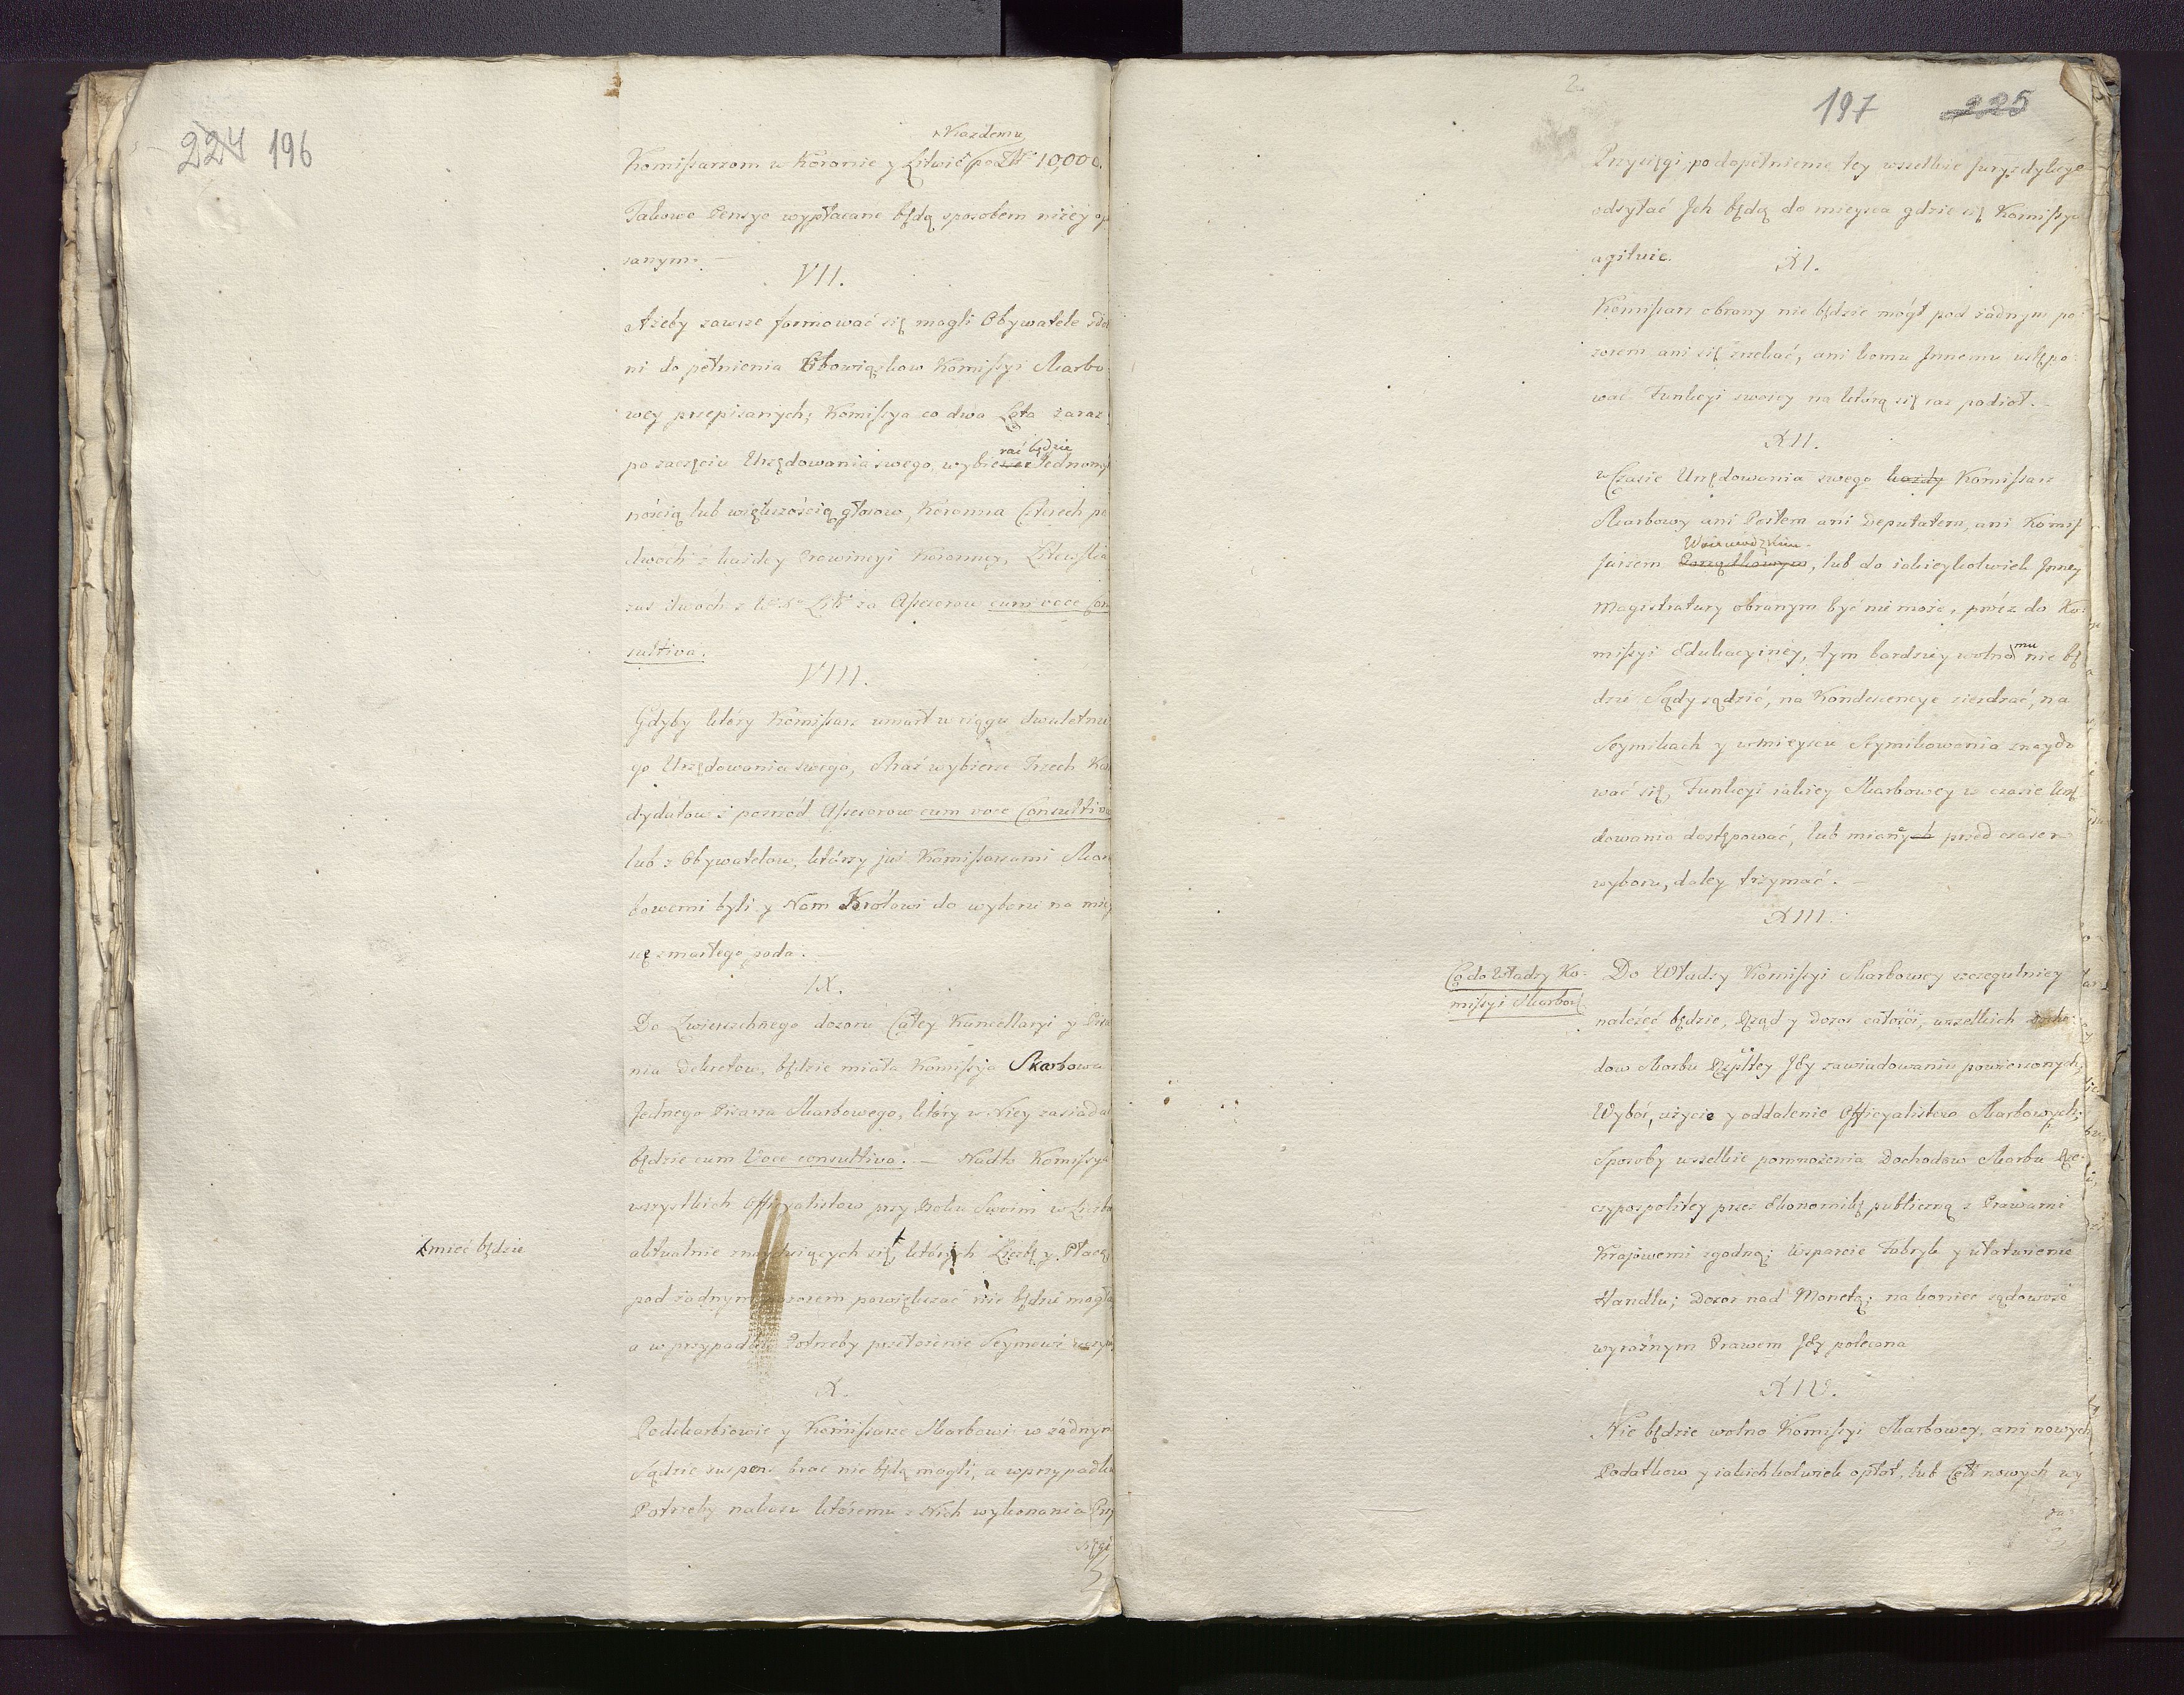 224 196
każdemu
Komissarzom w Koronie y Litwie po Zł 10,000.
Takowe Pensye wypłacane będą sposobem niżey opi
sanym. —
VII.
Ażeby zawsze formować się mogli Obywatele zdol
ni do pełnienia Obowiązkow Komissyi Skarbo
wey przepisanych; Komissya co dwa Lata zaraz
rać będzie
po zaczęciu Urzędowania swego, wybierze Jednomyśl
nością lub większością głosow, Koronna Czterech po
dwoch z każdey Prowincyi Koronney, Litewska
zaś dwoch z W. X. Litt za Assessorow cum voce con
sultiva.
VIII.
Gdyby który Komissarz umarł w ciągu dwuletnie
go Urzędowania swego, Straż wybierze Trzech Kan
dydatow z pośrod Assessorow cum voce Consultiva
lub z Obywatelow, którzy już Komissarzami Skar
bowemi byli y Nam Królowi do wyboru na miey
sce zmarłego poda.
IX.
Do Zwierzchnego dozoru Całey Kancellaryi y Pisa
nia Dekretow, będzie miała Komissya Skarbowa
Jednego Pisarza Skarbowego, który w Niey zasiadać
będzie cum Voce consultiva. — Nadto Komissya
wszystkich Officyalistow przy Boku Swoim w Liczbie
mieć będzie
aktualnie znayduiących się, których Liczbę y Płacę
pod żadnym pozorem powiększać nie będzie mogła
a w przypadku Potrzeby przełożenie Seymowi uczyni
X.
Podskarbiowie y Komissarze Skarbowi w żadnym
Sądzie suspens brac nie będą mogli, a w przypadku
Potrzeby nakazu któremu z Nich wykonania Przy
sięgi
197 225
Przysięgi, po dopełnienie tey wszelkie Juryzdykcye
odsyłać Ich będą do mieysca gdzie się Komissya
agituie.
XI.
Komissarz obrany nie będzie mógł pod żadnym po
zorem ani się zrzekać, ani komu Innemu ustępo
wać Funkcyi swoiey na którą się raz podiął. —
XII.
w Czasie Urzędowania swego każdy Komissarz
Skarbowy ani Posłem ani Deputatem, ani Komis
Woiewodzkim
sarzem Porządkowym, lub do iakieykolwiek Inney
Magistratury obranym być nie może, prócz do Ko-
missyi Edukacyiney, tym bardziey wolno mu nie bę
dzie Sądy sądzić, na Kondescencye ziezdzać, na
Seymikach y w mieyscu Seymikowania znaydo
wać się, Funkcyi iakiey Skarbowey w czasie Urzę
dowania dostępować, lub mianych przed czasem
wyboru, daley trzymać. —
XIII.
Co do Władzy Ko-
missyi Skarbow
Do Władzy Komissyi Skarbowey szczegulniey
należeć będzie, Rząd y Dozor całości, wszelkich docho-
dow Skarbu Rzpltey Jey zawiadowaniu powierzonych;
Wybór, użycie y oddalenie Officyalistow Skarbowych;
Sposoby wszelkie pomnożenia Dochodow Skarbu Rze-
czypospolitey przez Ekonomikę publiczną z Prawami
Kraiowemi zgodną; Wsparcie Fabryk y ułatwienie
Handlu; Dozor nad Monetą; na koniec sądowość
wyraźnym Prawem Jey polecona
XIV.
Nie będzie wolno Komissyi Skarbowey, ani nowych
Podatkow y iakichkolwiek opłat, lub Ceł nowych wy